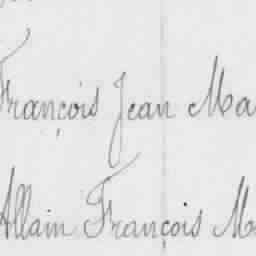 François Jean Ma
Allain François M